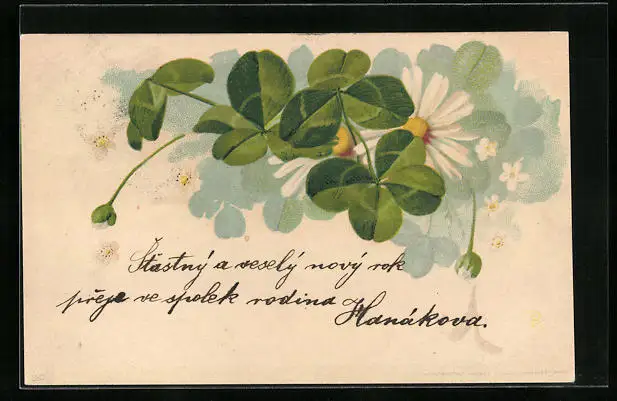 Šťastný a veselý nový rok
přeje ve spolek rodina Hanákova.